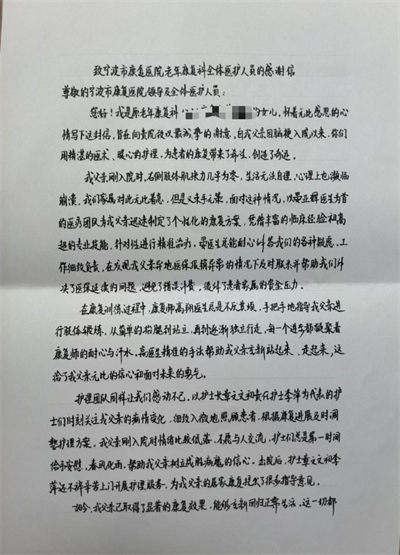 致宁波市康复医院老年康复科全体医护人员的感谢信
尊敬的宁波市康复医院领导及全体医护人员：
您好！我是原老年康复科 的女儿，怀着无比感恩的心
情写下这封信，旨在向贵院致以最诚挚的谢意，自我父亲因脑梗入院以来，你们
用精湛的医术、暖心的护理，为患者的康复带来了希望，创造了奇迹。
我父亲刚入院时，右侧肢体肌张力几乎为零，生活无法自理，心理上也濒临
崩溃，我们家属对此无比着急，但是父亲手无策，面对这种情况，以晏正辉医生为首
的医疗团队为我父亲迅速制定了个性化的康复方案，凭借丰富的临床经验和高
超的专业技能，针对性进行精准治疗，晏医生总能耐心解答我们的各种疑虑，工
作细致负责，在发现我父亲异地医保报销异常的情况下及时联系并帮助我们解
决了医保延续的问题，避免了错误计费，缓解了患者家属的资金压力。
在康复训练过程中，康复师高翔医生总是不厌其烦，手把手地指导我父亲进
行肢体锻炼，从简单的抬腿到站立，再到逐渐独立行走，每一个进步都凝聚着
康复师的耐心与汗水，高医生精准的手法帮助我父亲重新站起来，走起来，这
给了我父亲无比的信心和面对未来的勇气。
护理团队同样让我们感动不已，以护士长章文文和责任护士李萍为代表的护
士们时刻关注我父亲的病情变化，细致入微地照顾患者，根据康复进展及时调
整护理方案，我父亲刚入院时情绪比较低落，不愿与人交流，护士们总是第一时间
给予安慰，春风化雨，帮助我父亲树立战胜病魔的信心，出院后，护士章文文和李
萍还不辞辛苦上门开展护理服务，为我父亲的居家康复提出了很多指导意见。
如今，我父亲已取得了显著的康复效果，能够重新回归正常生活，这一切都